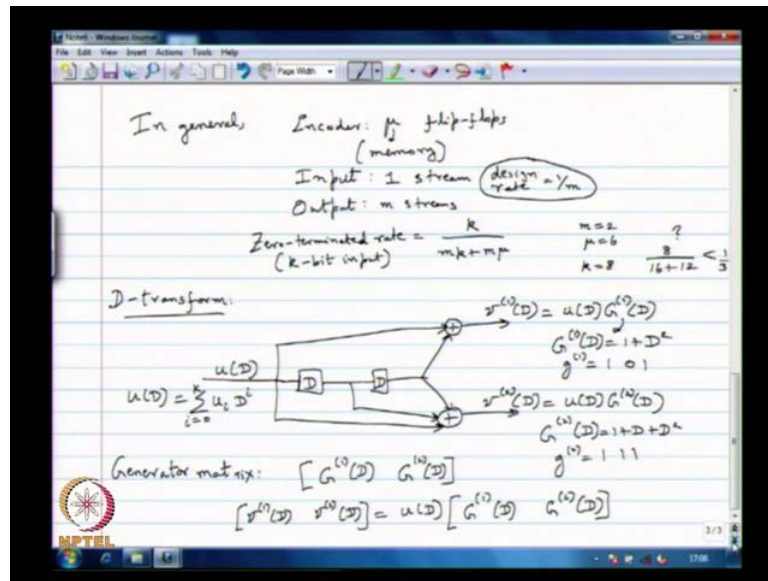 Note6 - Windows Journal
File Edit View Insert Actions Tools Help
Page Width
In general, Encoder: μ flip-flops
(memory)
Input: 1 stream (design rate = 1/m)
Output: m streams
Zero-terminated rate = k / (mk + mμ)
(k-bit input)
m = 2
μ = 6
k = 8
?
8 / (16 + 12) < 1/3
D-transform:
v^(1)(D) = u(D) G^(1)(D)
G^(1)(D) = 1 + D^2
g^(1) = 1 0 1
u(D)
D
D
u(D) = Σ_{i=0}^{k} u_i D^i
v^(2)(D) = u(D) G^(2)(D)
G^(2)(D) = 1 + D + D^2
g^(2) = 1 1 1
Generator matrix: [G^(1)(D) G^(2)(D)]
[v^(1)(D) v^(2)(D)] = u(D) [G^(1)(D) G^(2)(D)]
3/3
NPTEL
17:06